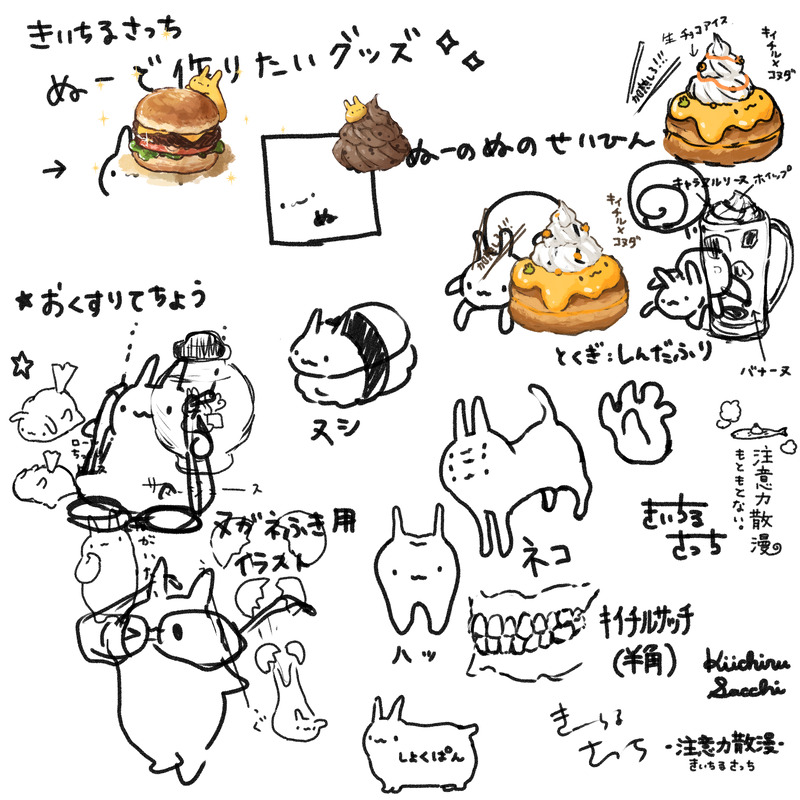 きいちるさっち
ぬーで作りたいグッズ
生チョコアイス
加熱しろ!!!
キイチル×
コヌダ
ぬ
ぬーのぬのせいひん
キャラヌルソーヌ
ホイップ
キイチル×
コヌダ
バナーヌ
とくぎ:しんだふり
★おくすりてちょう
ヌシ
ヌガネふき用
イラスト
ネコ
ハッ
しょくぱん
注意力散漫
もともてない。
きいちる
さっち
キイチルサッチ
(半角)
Kiichiru
Sacchi
きーちる
さっち
-注意力散漫-
きいちるさっち